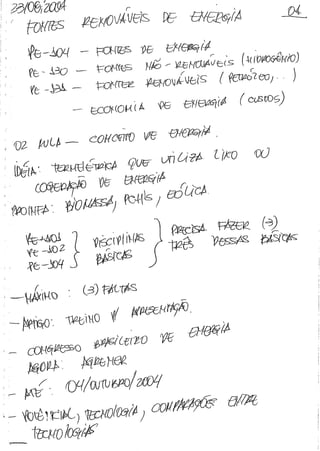 23/08/2004
01
FONTES RENOVÁVEIS DE ENERGIA
PE-104 — FONTES DE ENERGIA
PE-130 — FONTES NÃO-RENOVÁVEIS (HIDROGÊNIO)
PE-131 — FONTES RENOVÁVEIS (PETRÓLEO,...)
— ECONOMIA DE ENERGIA (CUSTOS)
02 AULA — CONCEITO DE ENERGIA.
IDÉIA: TERMELÉTRICA QUE UTILIZA LIXO OU
COGERAÇÃO DE ENERGIA
PROINFA: BIOMASSA, PCH'S, EÓLICA
PE-101
PE-102
PE-104
DISCIPLINAS BÁSICAS
PRECISA FAZER (3)
TRÊS DESSAS BÁSICAS
— MÁXIMO : (3) FALTAS
— ARTIGO: TREINO P/ APRESENTAÇÃO.
— CONGRESSO BRASILEIRO DE ENERGIA
AGORA: AGRENER
— ATÉ : 04/OUTUBRO/2004
— POTENCIAL, TECNOLOGIA, COMPARAÇÕES ENTRE
TECNOLOGIAS